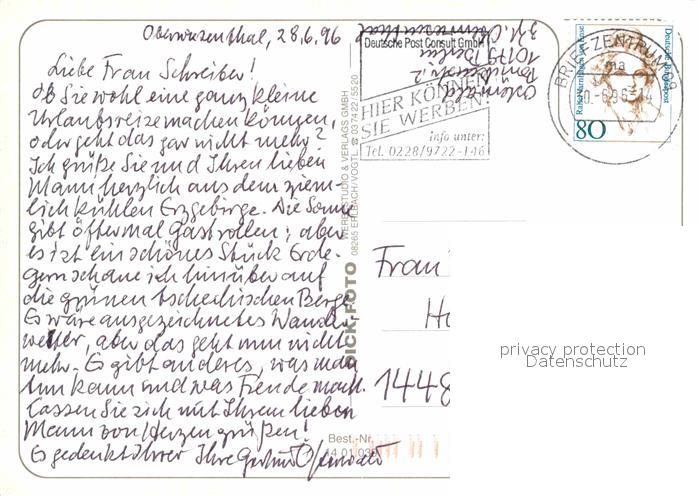 Oberwiesenthal, 28.6.96
Liebe Frau Schreiber!
Ob Sie wohl eine ganz kleine
Urlaubsreise machen können,
oder geht das gar nicht mehr?
Ich grüße Sie und Ihren lieben
Mann herzlich aus dem ziem-
lich kühlen Erzgebirge. Die Sonne
gibt öfter mal Gastrollen; aber
es ist ein schönes Stück Erde.
Gern schaue ich hinüber auf
die grünen tschechischen Berge.
Es wäre ausgezeichnetes Wander-
wetter, aber das geht nun nicht
mehr. Es gibt anderes, was man
tun kann und was Freude macht.
Lassen Sie sich mit Ihrem lieben
Mann von Herzen grüßen!
Es gedenkt Ihrer Ihre
BICK-FOTO
WERBESTUDIO & VERLAGS GMBH
08265 ERLBACH/VOGTL. ☎ 037422/5520
Best.-Nr.
14 01 035
Deutsche Post Consult GmbH
10179 Berlin
HIER KÖNNEN
SIE WERBEN!
info unter:
Tel. 0228/9722-146
BRIEFZENTRUM 09
ma
80
Deutsche Bundespost
Rahel Varnhagen von Ense
Frau
1448
privacy protection
Datenschutz